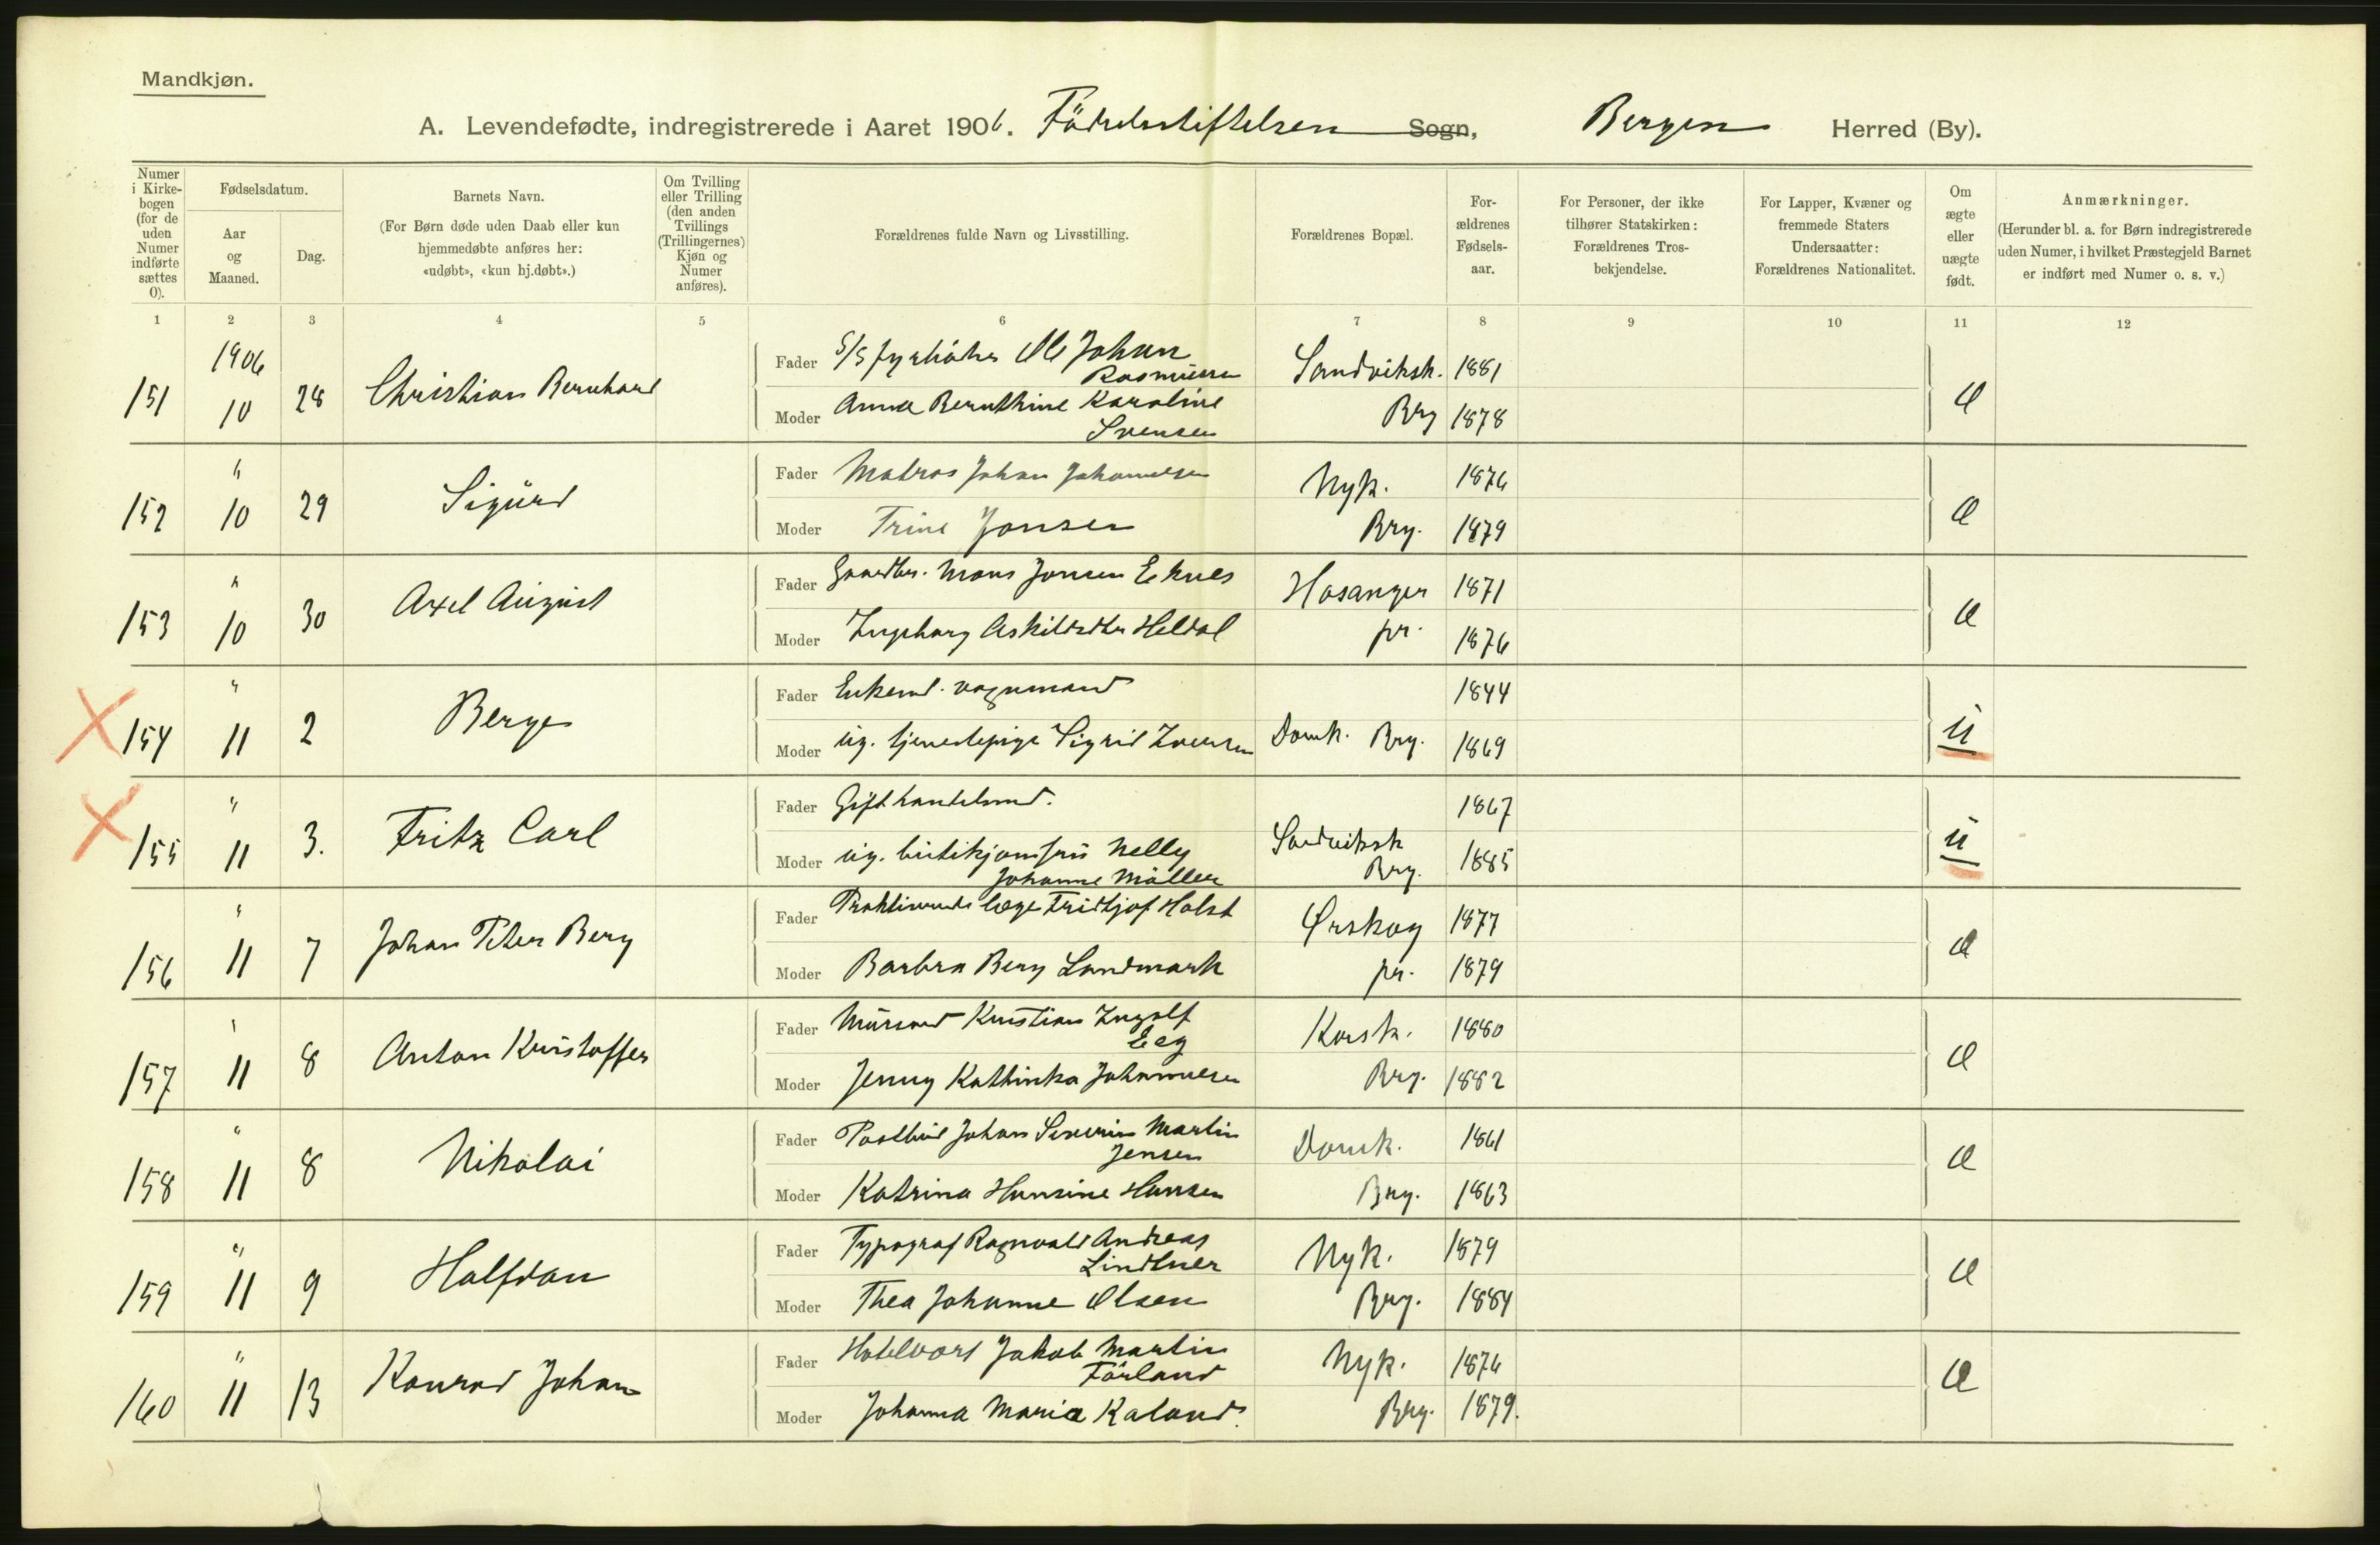 Mandkjøn.
A. Levendefødte, indregistrerede i Aaret 1906. Födselsstiftelsen Sogn, Bergen Herred (By).
Numer i Kirkebogen (for de uden Numer indførte sættes 0).
Fødselsdatum.
Aar og Maaned.
Dag.
Barnets Navn.
(For Børn døde uden Daab eller kun hjemmedøbte anføres her: «udøbt», «kun hj.døbt».)
Om Tvilling eller Trilling (den anden Tvillings (Trillingernes) Kjøn og Numer anføres).
Forældrenes fulde Navn og Livsstilling.
Forældrenes Bopæl.
Forældrenes Fødselsaar.
For Personer, der ikke tilhører Statskirken: Forældrenes Trosbekjendelse.
For Lapper, Kvæner og fremmede Staters Undersaatter: Forældrenes Nationalitet.
Om ægte eller uægte født.
Anmærkninger.
(Herunder bl. a. for Børn indregistrerede uden Numer, i hvilket Præstegjeld Barnet er indført med Numer o. s. v.)
1 2 3 4 5 6 7 8 9 10 11 12
151 1906 10 28 Christian Bernhard
Fader S/S fyrböter Ole Johan Rasmussen Sandviksk. 1881
Moder Anna Bernthine Karoline Svensen Brg 1878
Æ
152 " 10 29 Sigurd
Fader Matros Johan Johannesen Nyk. 1876
Moder Trine Jonsen Brg. 1879
Æ
153 " 10 30 Axel August
Fader Gaardbr. Mons Jonsen Eknes Hosanger 1871
Moder Ingeborg Askildsdtr Heldal pr. 1876
Æ
154 " 11 2 Berge
Fader Enkemd. vognmand 1844
Moder ug. tjenestepige Sigrid Iversen Domk. Brg. 1869
u
155 " 11 3. Fritz Carl
Fader Gift handelsmd. 1867
Moder ug. butikjomfru Nelly Johanne Möller Sandviksk Brg. 1885
u
156 " 11 7 Johan Peter Berg
Fader Praktiserende læge Fridtjof Holst Ørskog 1877
Moder Barbra Berg Landmark pr. 1879
Æ
157 " 11 8 Anton Kristoffer
Fader Mursvd Kristian Ingolf Eeg Korsk. 1880
Moder Jenny Kathinka Johannesen Brg. 1882
Æ
158 " 11 8 Nikolai
Fader Postbud Johan Severin Martin Jensen Domk. 1861
Moder Katrina Hansine Hansen Brg. 1863
Æ
159 " 11 9 Halfdan
Fader Typograf Ragnvald Andreas Lindtner Nyk. 1879
Moder Thea Johanne Olsen Brg. 1884
Æ
160 " 11 13 Konrad Johan
Fader Hotelvært Jakob Martin Förland Nyk. 1876
Moder Johanna Maria Kaland. Brg. 1879.
Æ